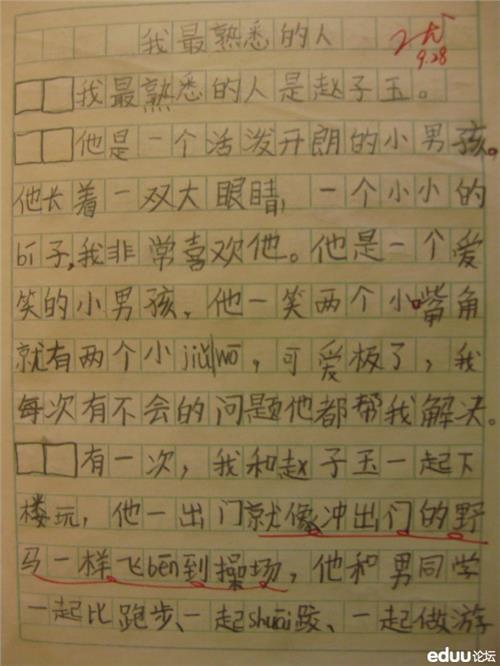 我最熟悉的人
优
9.28
我最熟悉的人是赵子玉。
他是一个活泼开朗的小男孩。
他长着一双大眼睛,一个小小的
bí子,我非常喜欢他。他是一个爱
笑的小男孩,他一笑两个小嘴角
就有两个小jiǔwō,可爱极了,我
每次有不会的问题他都帮我解决。
有一次,我和赵子玉一起下
楼玩,他一出门就像冲出门的野
马一样飞bēn到操场,他和男同学
一起比跑步、一起shuāi跤、一起做游
eduu论坛